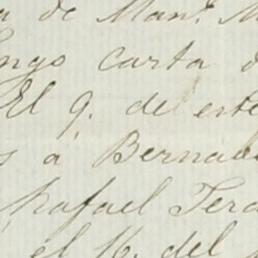 a de Man.l M
ngo carta d
El 9. del este
s a Bernab
Rafael Terá
el 16. del